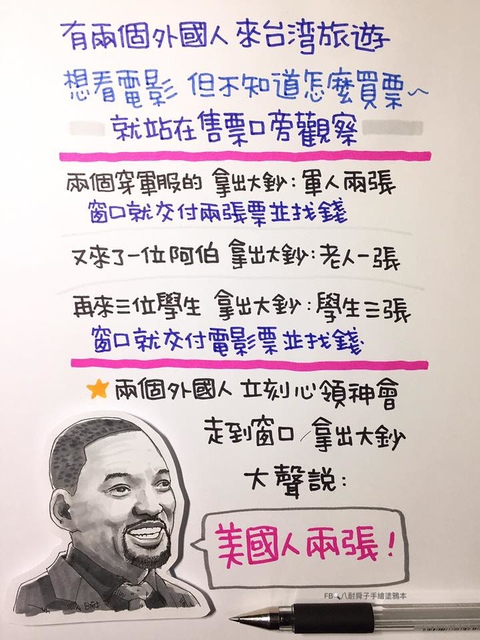 有兩個外國人來台湾旅遊
想看電影 但不知道怎麼買票~
就站在售票口旁觀察
兩個穿軍服的 拿出大鈔:軍人兩張
窗口就交付兩張票並找錢
又來了一位阿伯 拿出大鈔:老人一張
再來三位學生 拿出大鈔:學生三張
窗口就交付電影票並找錢
兩個外國人 立刻心領神會
走到窗口/拿出大鈔
大聲說:
美國人兩張!
FB 八耐舜子手繪塗鴉本